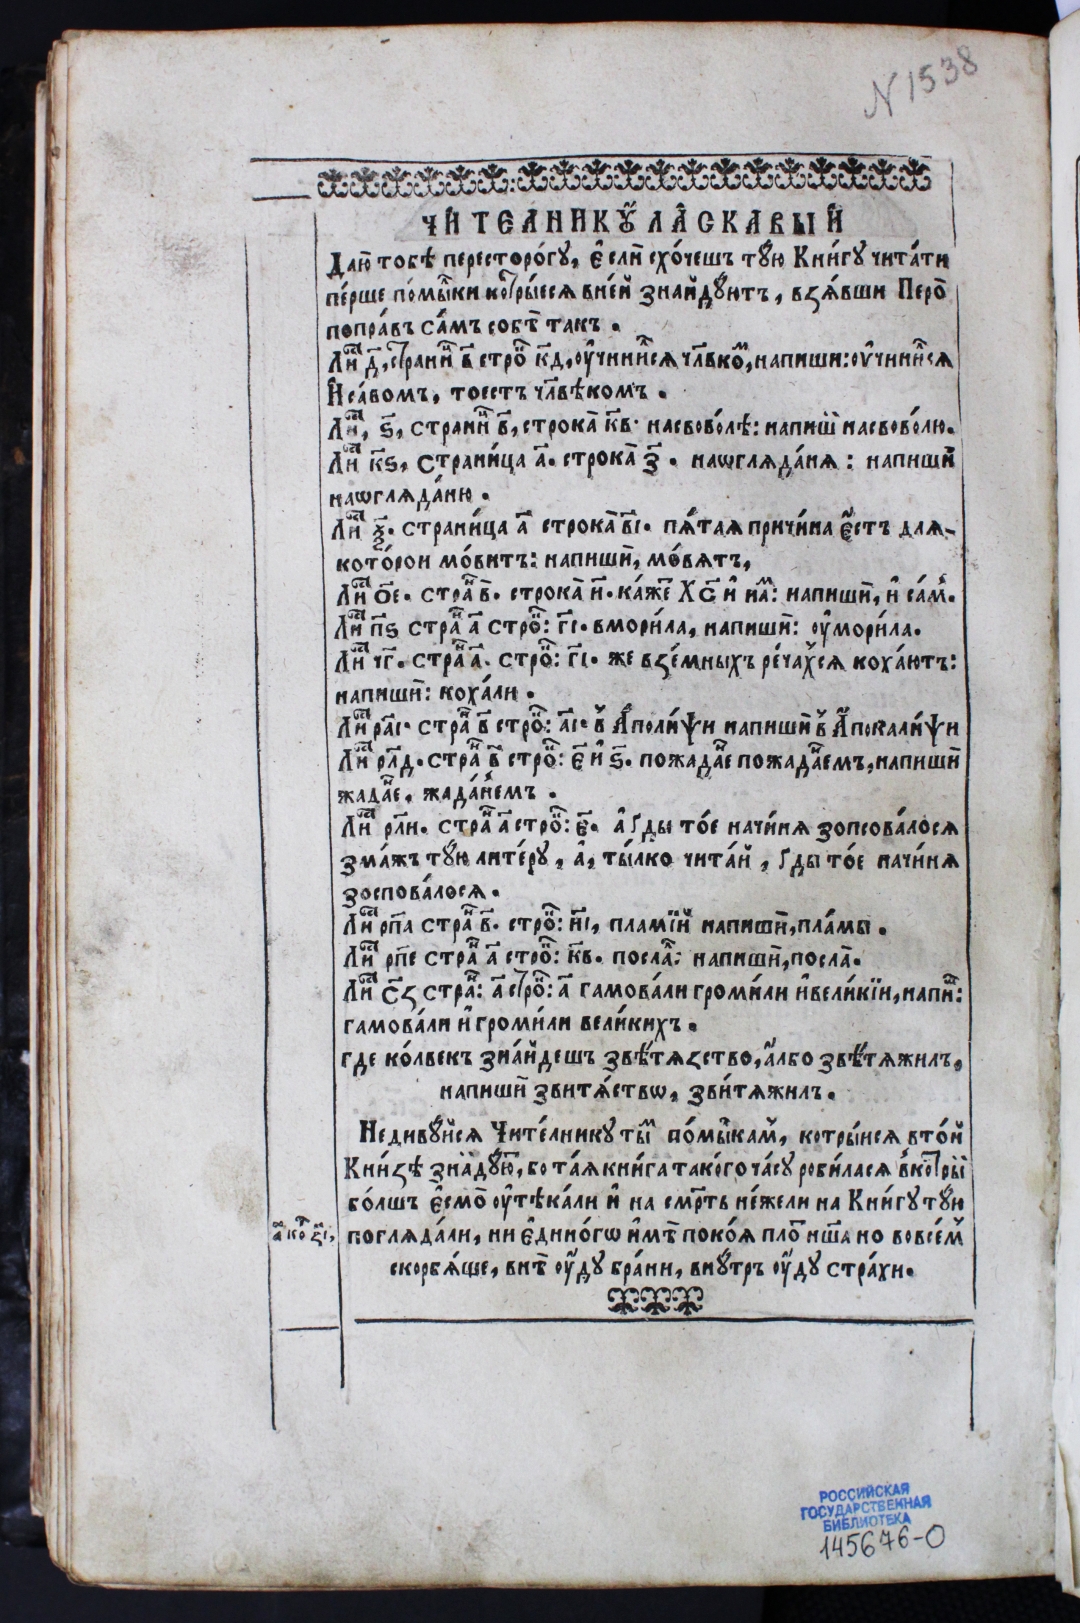 N 1538
ЧИТЕЛНИКꙊ ЛАСКАВЫЙ
Даю̑ тобѣ пересторо́гу, є҆сли̑ схо́чешъ тꙋ́ю Кни́гу чита́ти
пе́рше по́мы̑лки кото̑ры́еся вне́й знайдꙋ́ютъ, взѧ́вши Перо̑
попра́въ са́мъ собѣ̀ такъ.
Лис̑ д҃, страни̑ц в҃ стро̑к к҃д, оу҆чини̑лся чл҃вко̑м, напиши: оу҆чини̑лся
И҆са́вомъ, тоестъ чл҃вѣкомъ.
Лис̑, ѕ҃, страни̑ц в҃, строка̀ к҃в. насвово́лѣ: напиш̑и насвово́лю.
Лис̑ к҃ѕ, страни́ца а҃. строка̀ з҃. наѡгляда́ня: напиши̑
наѡгляда́ню.
Лис̑ ѯ҃. страни́ца а҃ строка̀ в҃і. пѧ́тая причи́на є҆́стъ для-
кото́рои мо́витъ: напиши̑, мо́вятъ,
Лис̑ о҃е. стран̑ в҃. строка̀ и҃. ка́же̑т Хс҃ и҆ на̑м: напиши̑, и҆ са́м̑.
Лис̑ п҃ѕ стран̑ а҃ стро̑к: г҃і. вмори́ла, напиши̑: оу҆мори́ла.
Лис̑ ч҃г. стран̑ а҃. стро̑к: г҃і. же взе́мныхъ ре́чах̑ся коха́ютъ:
напиши̑: коха́ли.
Лис̑ ра҃і. стран̑ в҃ стро̑к: а҃і. в̑ А҆поли́ѱи напиши̑ в̑ А҆покали́ѱи
Лис̑ рл҃д. стран̑ в҃ стро̑к: є҃ и҆ ѕ҃. пожада̑не пожада̑немъ, напиши̑
жада̑не, жада́н̑емъ.
Лис̑ рл҃и. стран̑ а҃ стро̑к: є҃. а҆ ґды то́е начи́ня зопсова́лося
зма́жъ тꙋ́ю лите́ру, а҆, ты́лко чита́й, ґды то́е начи́ня
зоспова́лося.
Лис̑ рп҃а стран̑ в҃. стро̑к: и҃і, пламї̑й напиши̑, пла́мы.
Лис̑ рп҃е стран̑ а҃ стро̑к: к҃в. посла̑л: напиши̑, посла̑.
Лис̑ с҃ꙁ стран̑: а҃ стро̑к: а҃ гамова́ли громи́ли и҆вели́кїи, напи̑ш:
гамова́ли и҆ громи́ли вели́кихъ.
где ко́лвекъ зна́йдешъ звѣ́тязство, а҆́лбо звѣ́тяжилъ,
напиши̑ звитѧ́ствѡ, зви́тяжилъ.
Недивꙋ́йся Чите́лнику ты̑м по́мы̑лкам̑, котры́ися втой
Кни́зѣ зна̑йдꙋ́ю̑т, бо та́я книга тако́го ча́су робилася в̑ко̑трыї
бо́лшъ є҆смо̑ оу҆тѣка́ли и҆ на сме̑рть не́жели на Кни́гу тꙋ́ю
а҃ ко̑р ѕ҃і, погляда́ли, ни є҆дино́гѡ и҆мѣ̀ поко́я пло̑т на̑ша но вовсе́м̑
скорбѧ́ше, внѣ̀ оу҆́ду бра́ни, внꙋ́тръ оу҆́ду стра́хи.
РОССИЙСКАЯ
ГОСУДАРСТВЕННАЯ
БИБЛИОТЕКА
145676-О